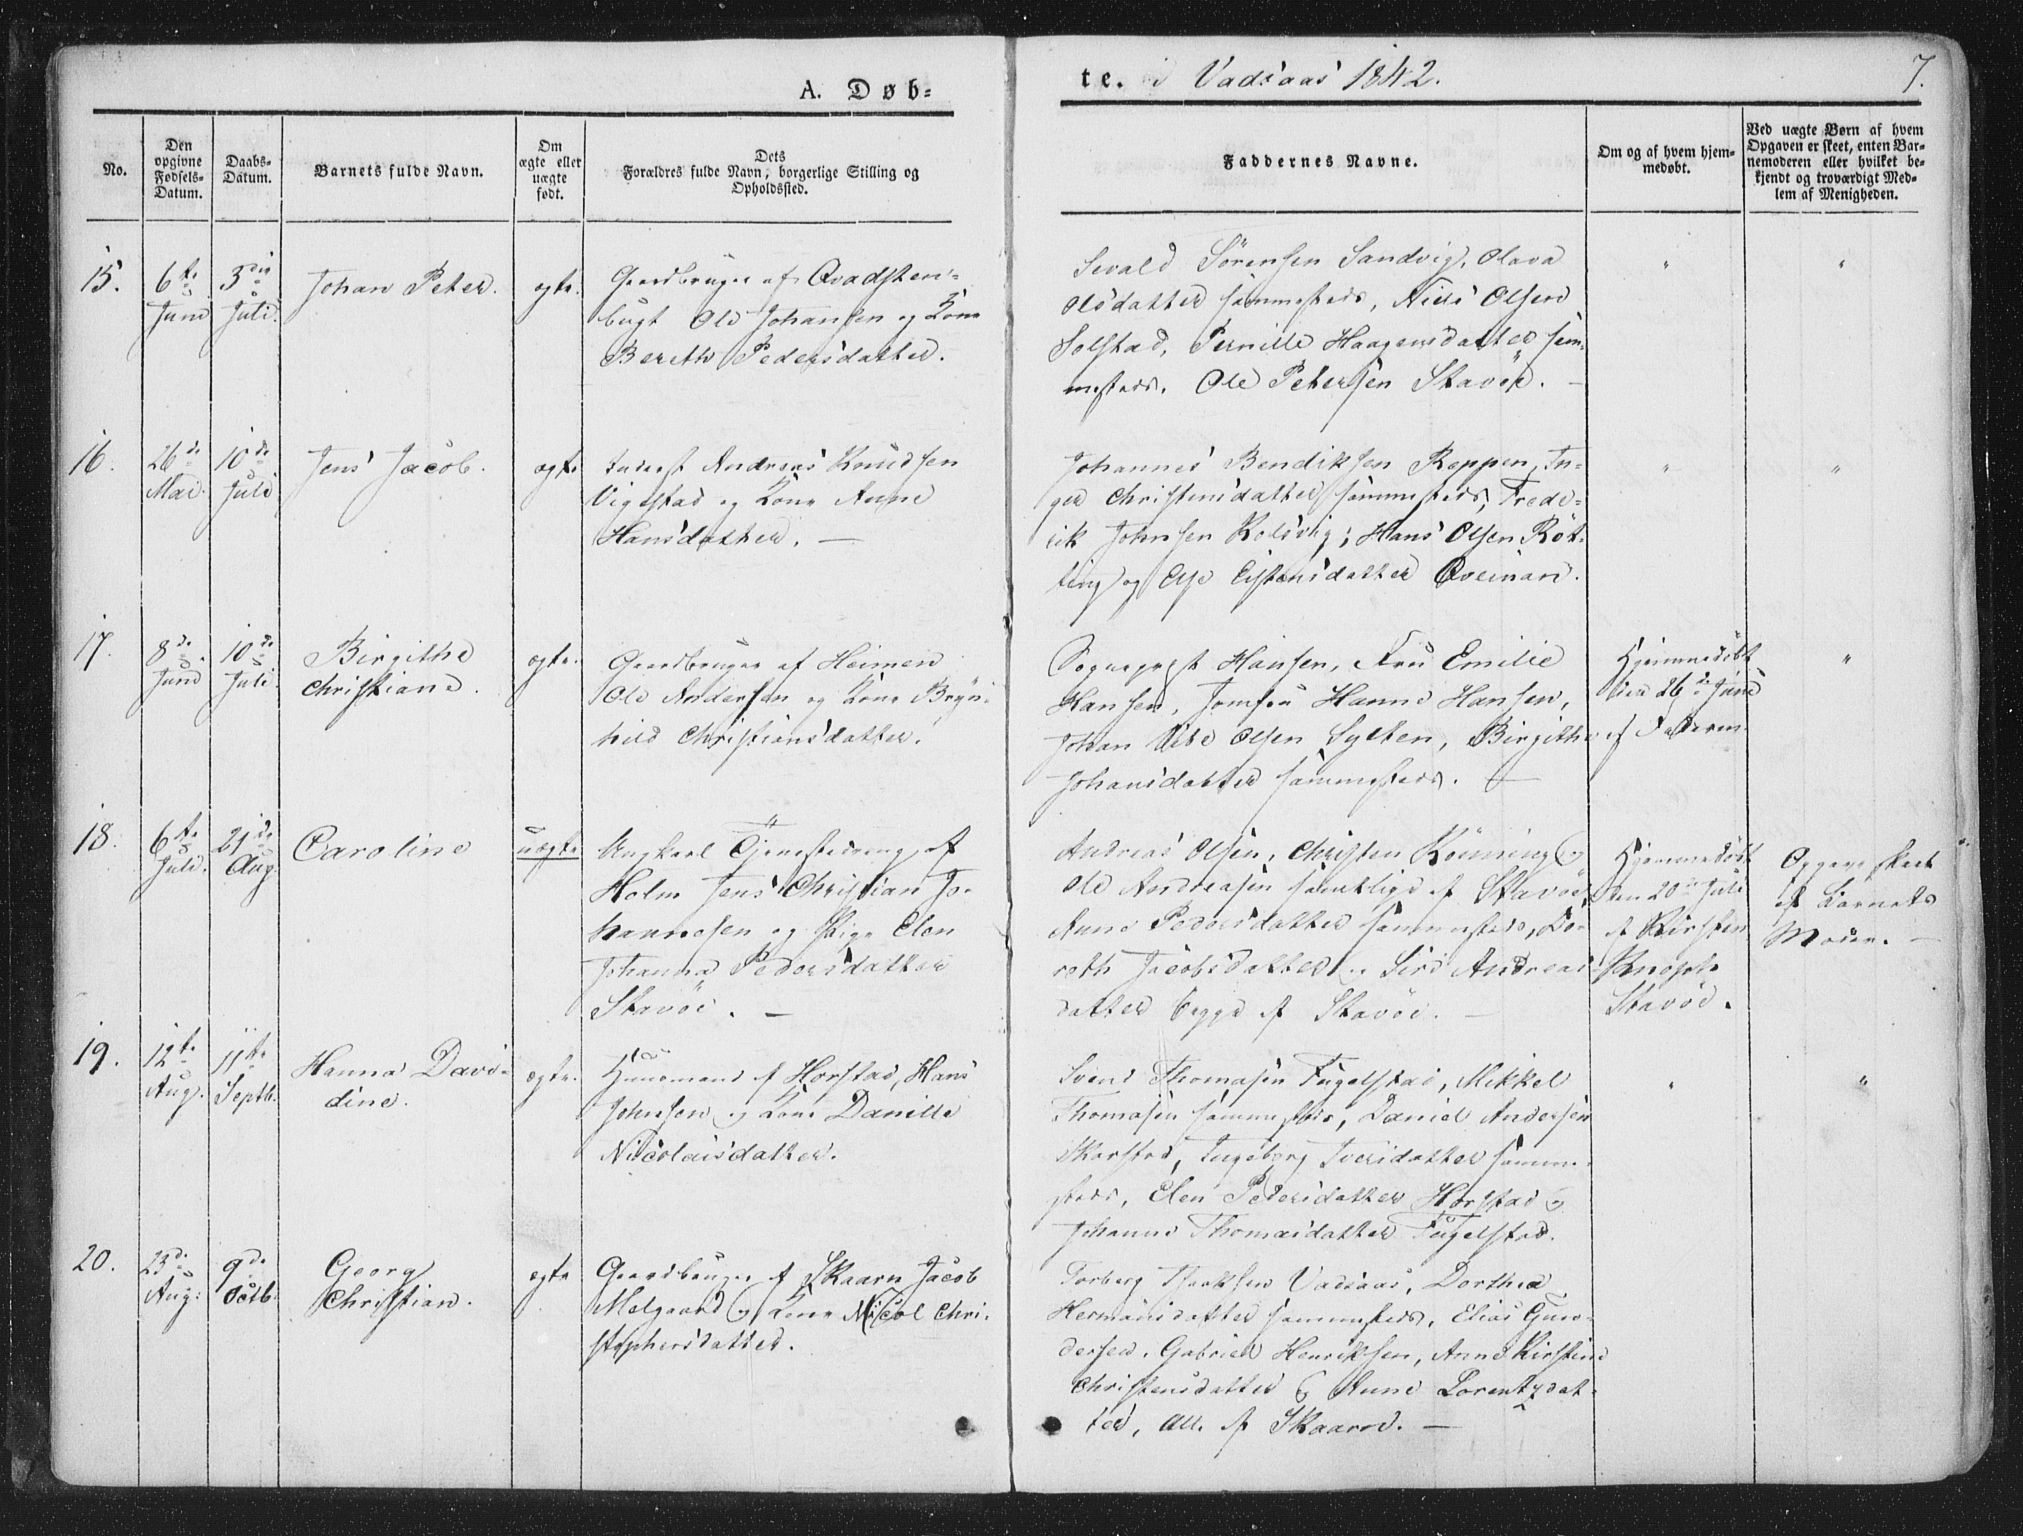 A. Døb-
te. i Vadsaas 1842.
7.
No.
Den opgivne Fødsels-Datum.
Daabs-Datum.
Barnets fulde Navn.
Om ægte eller uægte født.
Dets
Forældres fulde Navn, borgerlige Stilling og
Opholdssted.
Faddernes Navne.
Om og af hvem hjem-
medøbt.
Ved uægte Børn af hvem
Opgaven er skeet, enten Bar-
nemoderen eller hvilket be-
kjendt og troværdigt Med-
lem af Menigheden.
15.
6te
Juni
3die
Juli.
Johan Peter.
ægte.
Gaardbruger af Qvadsten-
bugt Ole Johansen og Kone
Bereth Pedersdatter.
Sivald Sørensen Sandvig, Olava
Olsdatter sammesteds, Niels Olsen
Solstad, Pernille Haagensdatter sam-
mesteds, Ole Petersen Stavöe. —
"
"
16.
26de
Mai.
10de
Juli
Jens Jacob.
ægte
Inderst Andreas Knudsen
Vigestad og Kone Anne
Hansdatter. —
Johannes Bendiksen Reppen, In-
ger Christensdatter sammesteds, Frede-
rik Johnsen Kolsvig, Hans Olsen Röt-
ting og Else Eistensdatter Qveinan.
"
"
17.
8de
Juni
10de
Juli
Birgithe
Christiane.
ægte.
Gaardbruger af Heimen
Ole Andersen og Kone Bryn-
hild Christiansdatter.
Sognepræst Hansen, Fru Emilie
Hansen, Jomfru Hanne Hansen,
Johan Olsen Sylten, Birgithe
Johansdatter sammesteds. —
Hjemmedøbt
den 26de Juni
af Faderen
"
18.
6te
Juli.
21de
Aug
Caroline
uægte
Ungkarl Tjenestedreng af
Holm Jens Christian Jo-
hannesen og Pige Elen
Johanna Pedersdatter
Stavöe. —
Andreas Olsen, Christen Könning og
Ole Andreasen samtlige af Stavöe,
Anne Pedersdatter sammesteds, Do-
reth Jacobsdatter og Siri Andreas-
datter begge af Stavöe. —
Hjemmedøbt
den 20de Juli
af Kirsten
Knoph
Stavöe.
Opgave skeet
af Barnets
Moder. —
19.
12te
Aug.
11te
Septb.
Hanna Davi-
dine.
ægte.
Huusmand af Horstad, Hans
Johnsen og Kone Danille
Nicolaisdatter.
Svend Thomasen Fugelstad, Mikkel
Thomasen sammesteds, Daniel Andersen
Skarstad, Ingeborg Iversdatter samme-
steds, Elen Pedersdatter Horstad og
Johanne Thomasdatter Fugelstad.
"
"
20.
23de
Aug:
9de
Octb.
Georg
Christian.
ægte
Gaardbruger af Skaaren Jacob
Melgaard og Kone Nicol Chri-
stophersdatter.
Torberg Isaksen Vadsaas, Dorthea
Hermansdatter sammesteds, Elias Gun-
dersen, Gabriel Henriksen, Anne Kirstine
Christensdatter og Anne Lorentzdat-
ter, Alle af Skaaren. —